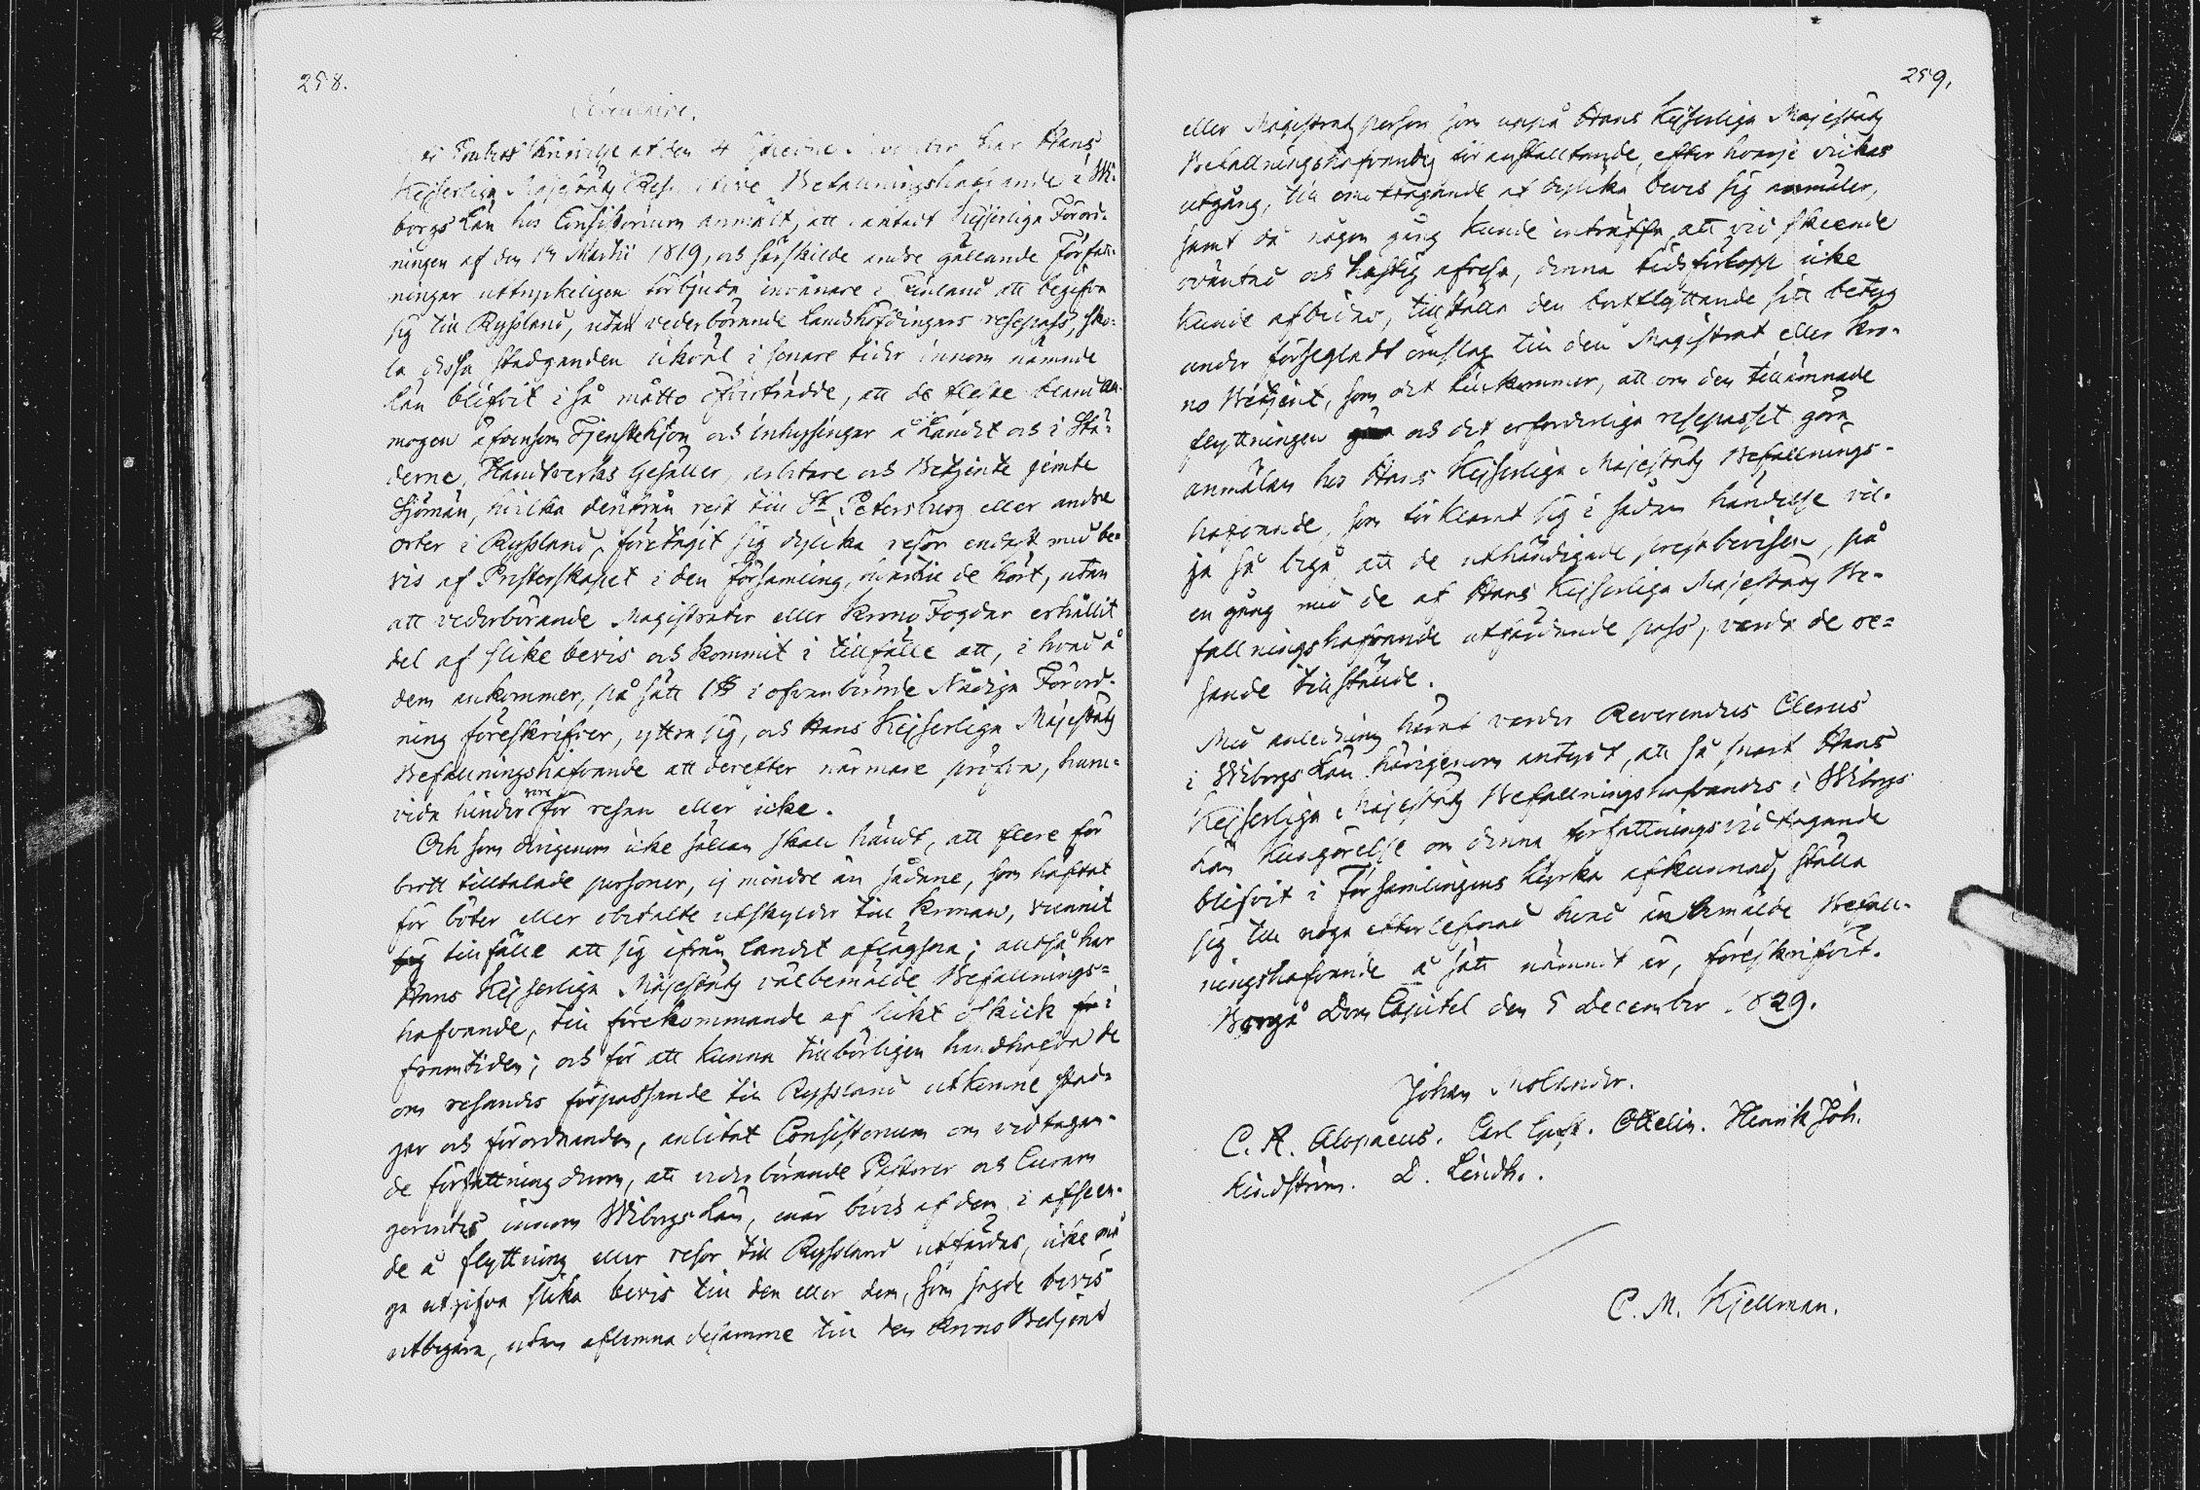 258.
Circulaire.
skrifvelse af den 4 har Hans
Kejserliga Majestäts Befallningshafvande i Wi-
borgs Län hos Consistorium anmält, att oaktadt Kejserliga Förord-
ningen af den 13 Martii 1819, och särskilde andre gällande Författ-
ningar uttryckeligen förbjuda invånare i Finland att begifva
sig till Ryssland, utan vederbörande Landshöfdingars resepass, sko-
la dessa stadganden likväl i senare tider innom nämnde
Län blifvit i så måtto öfverträdde, att de fleste bland All-
mogen äfvensom Tjenstehjon och inhysingar å Landet och i Stä-
derne, Handtverks Gesäller, arbetare och Betjente jemte
Sjömän, hvilka derifrån rest till St Petersburg eller andre
orter i Ryssland, företagit sig dylika resor endast med be-
vis af Presterskapet i den församling, hvartill de hört, utan
att vederbörande Magistrater eller Krono Fogdar erhållit
del af slike bevis och kommit i tillfälle att, i hvad å
dem ankommer, på sätt 1 § i ofvanberörde Nådiga Förord-
ning föreskrifver, yttra sig, och Hans Kejserliga Majestäts
Befallningshafvande att derefter närmare pröfva, huru-
vida hinder vore för resan eller icke.
Och som derigenom icke sällan skall händt, att flere för
brott tilltalade personer, ej mindre än sådane, som häftat
för böter eller obetalte utskylder till Kronan, vunnit
sig tillfälle att sig ifrån landet aflägsna; alltså har
Hans Kejserliga Majestäts välbemälde Befallnings-
hafvande, till förekommande af slikt oskick i
framtiden; och för att kunna tillbörligen handhafva de
om resandes förpassande till Ryssland utkomne stad-
gar och förordnanden, anlitat Consistorium om vidtagan-
de författning derom, att vederbörande Pastorer och Curam
gerentes innom Wiborgs Län, när bevis af dem i afseen-
de å flyttning eller resor till Ryssland utfärdas, icke må
ga utgifva slika bevis till den eller dem, som sagde bevis
utbegära, utan aflemna desamme till den Krono Betjent
259.
eller Magistrats person som uppå Hans Kejserliga Majestäts
Befallningshafvandes föranstalltande, efter hvarje veckas
utgång, till emottagande af dylika bevis sig anmäler,
samt då någon gång kunde inträffa, att vid skeende
oväntad och hastig afresa, denna tidsförlopp icke
kunde afbidas, tillställa den bortflyttande sitt betyg
under försegladt omslag till den Magistrat eller Kro-
no Betjent, som det tillkommer, att om den tillämnade
flyttningen och det erforderliga resepasset göra
anmälan hos Hans Kejserliga Majestäts Befallnings-
hafvande, som förklarat sig i sådan händelse vil-
ja så laga att de uthändigade prestbevisen, på
en gång med de af Hans Kejserliga Majestäts Be-
fallningshafvande utfärdande pass, varda de re-
sande tillstände.
Med anledning häraf varder Reverendus Clerus
i Wiborgs Län härigenom antydt, att så snart Hans
Kejserliga Majestäts Befallningshafvandes i Wiborgs
Län kungörelse om denna författnings vidtagande
blifvit i Församlingens Kyrka afkunnad, ställa
sig till noga efterlefnad hvad bemälde Befall-
ningshafvande å sätt nämndt är, föreskrifvit.
Borgå Dom Capitel den 5 December 1829.
Johan Molander.
C. A. Alopaeus. Carl Gust. Ottelin. Henrik Joh.
Lindström. L. Lindh.
C. M. Kjellman.